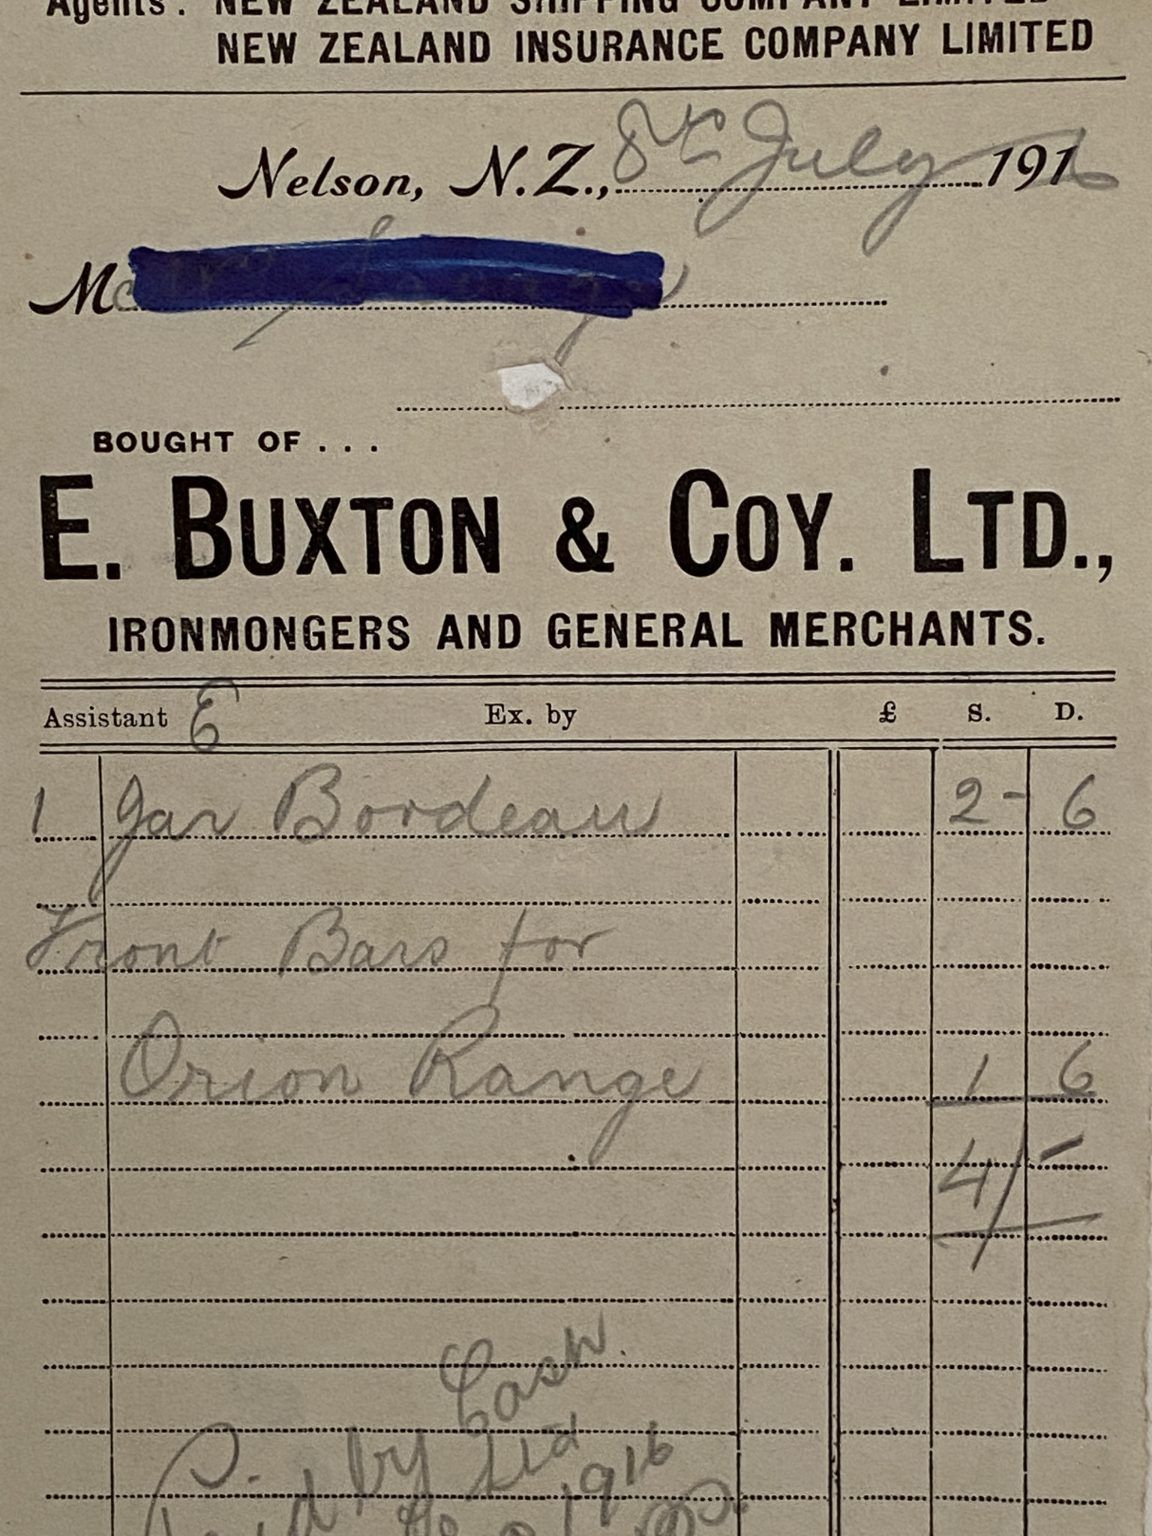 Agents: NEW ZEALAND SHIPPING COMPANY LIMITED
NEW ZEALAND INSURANCE COMPANY LIMITED
Nelson, N.Z., 8th July 1916
M
BOUGHT OF . . .
E. BUXTON & COY. LTD.,
IRONMONGERS AND GENERAL MERCHANTS.
Assistant E Ex. by £ S. D.
1 Jar Bordeau 2 - 6
Front Bars for
Orion Range 1 6
4/-
Cash.
Paid by
1916